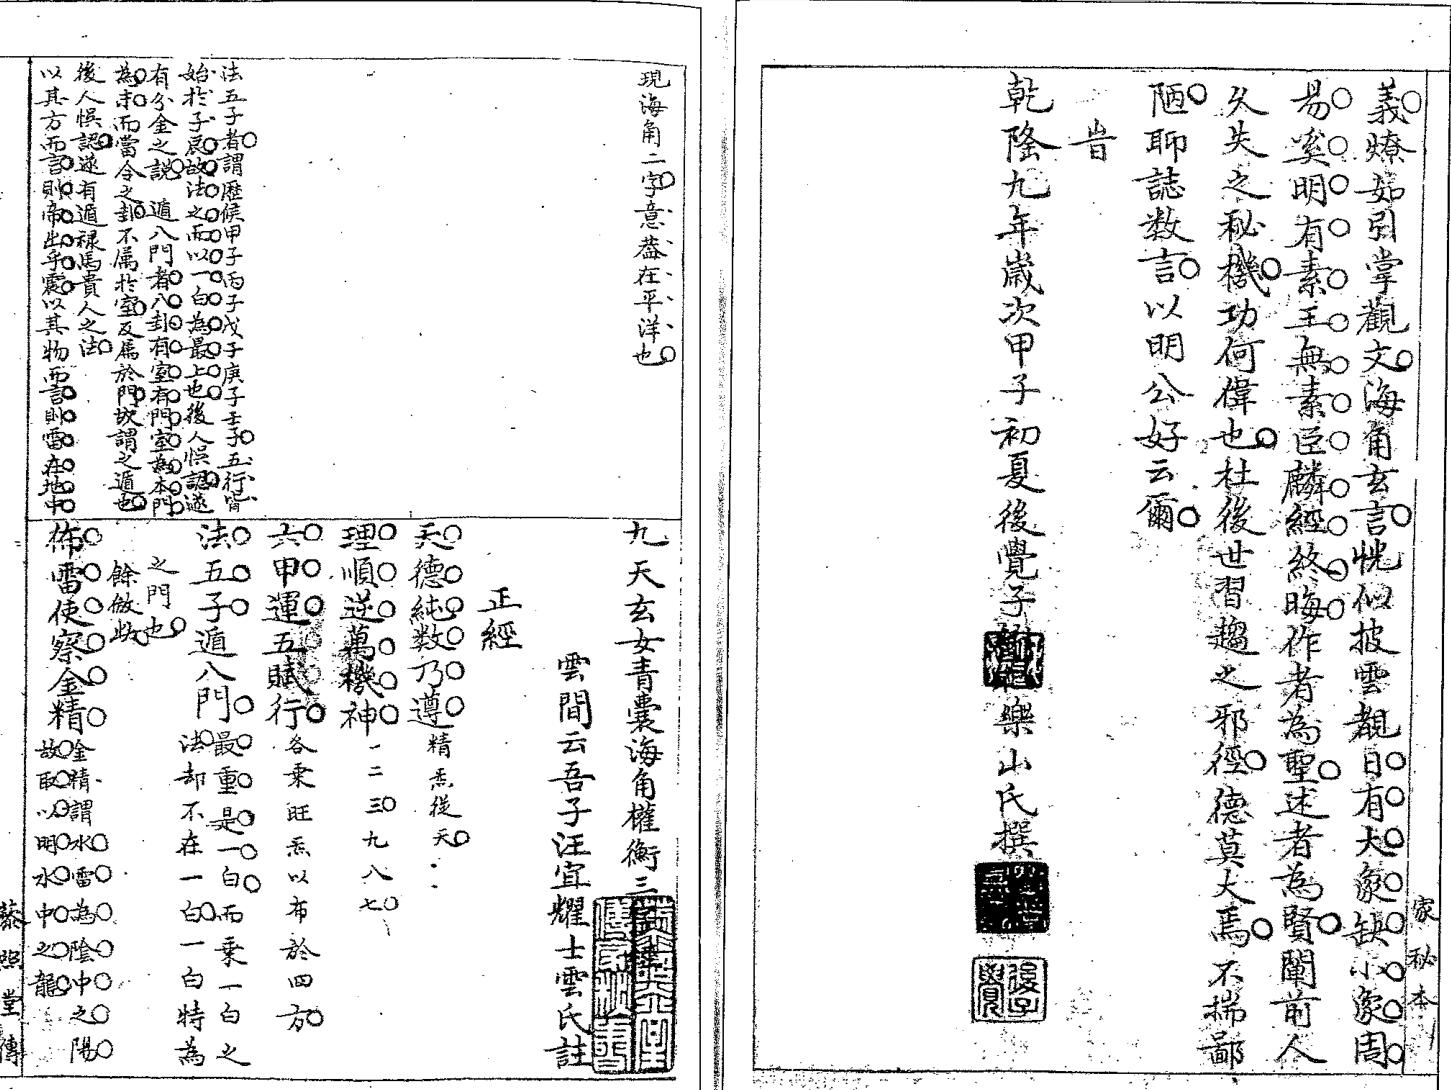 義燎如引掌觀文海角玄言恍似披雲覩日有大彖缺小彖周
易奚明有素王無素臣麟經終晦作者為聖述者為賢闡前人
久失之秘機功何偉也杜後世習趨之邪徑德莫大焉不揣鄙
陋聊誌数言以明公好云爾
旹
乾隆九年歲次甲子初夏後覺子樂山氏撰
家秘本
現海角二字意蓋在平洋也
法五子者謂歷候甲子丙子戊子庚子壬子五行皆
始於子辰故法之而以一白為最上也後人悞認遂
有分金之說 遁八門者八卦有室有門室為本門
為末而當令之卦不属於室反属於門故謂之遁也
後人悞認遂有遁禄馬貴人之法
以其方而言則帝出乎震以其物而言則雷在地中
九天玄女青囊海角權衡三
雲間云吾子汪宜耀士雲氏註
正經
天德純数乃遵精炁從天
理順逆萬機神一二三九八七
六甲運五賦行各乗旺炁以布於四方
法五子遁八門最重是一白而乗一白之
法却不在一白一白特為
之門也
餘倣此
佈雷使察金精金精謂水雷為陰中之陽
故取以明水中之龍
藜照堂傳